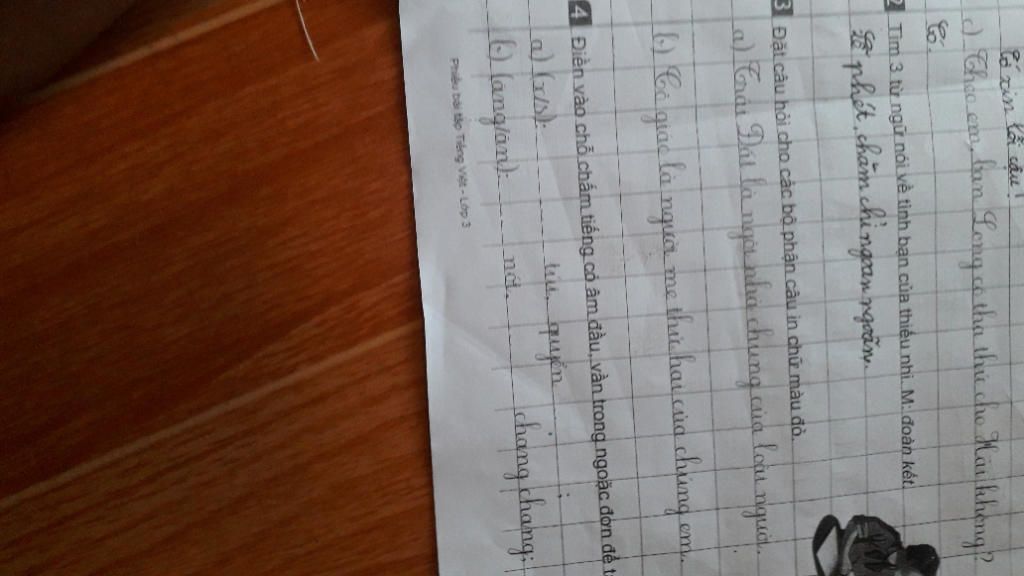 xin lỗi cậu!
c.) Theo em, bạn Long có tha thứ cho Mai không?
Có.
2 Tìm 3 từ ngữ nói về tình bạn của thiếu nhi. M: đoàn kết,
phét, chăm chỉ ngoan ngoãn.
3 Đặt câu hỏi cho các bộ phận câu in chữ màu đỏ.
a) Trái Đất là ngôi nhà chung của loài người.
b.) Cô giáo là người mẹ thứ hai của chúng em.
4 Điền vào chỗ chấm tiếng có âm đầu, vần trong ngoặc đơn để
a) (x/s): ríu, quyển
b.) (ang/an): nới, chang chang,
Phiếu bài tập Tiếng Việt - Lớp 3